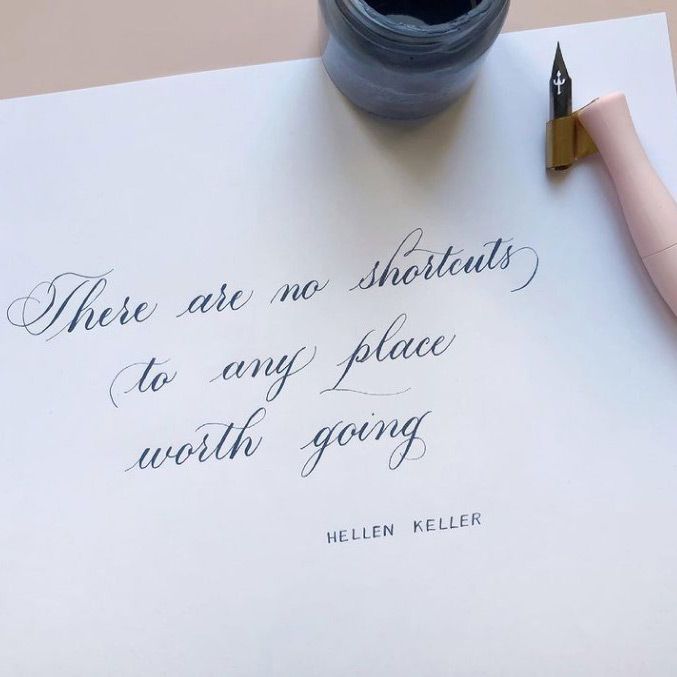 There are no shortcuts
to any place
worth going
HELLEN KELLER